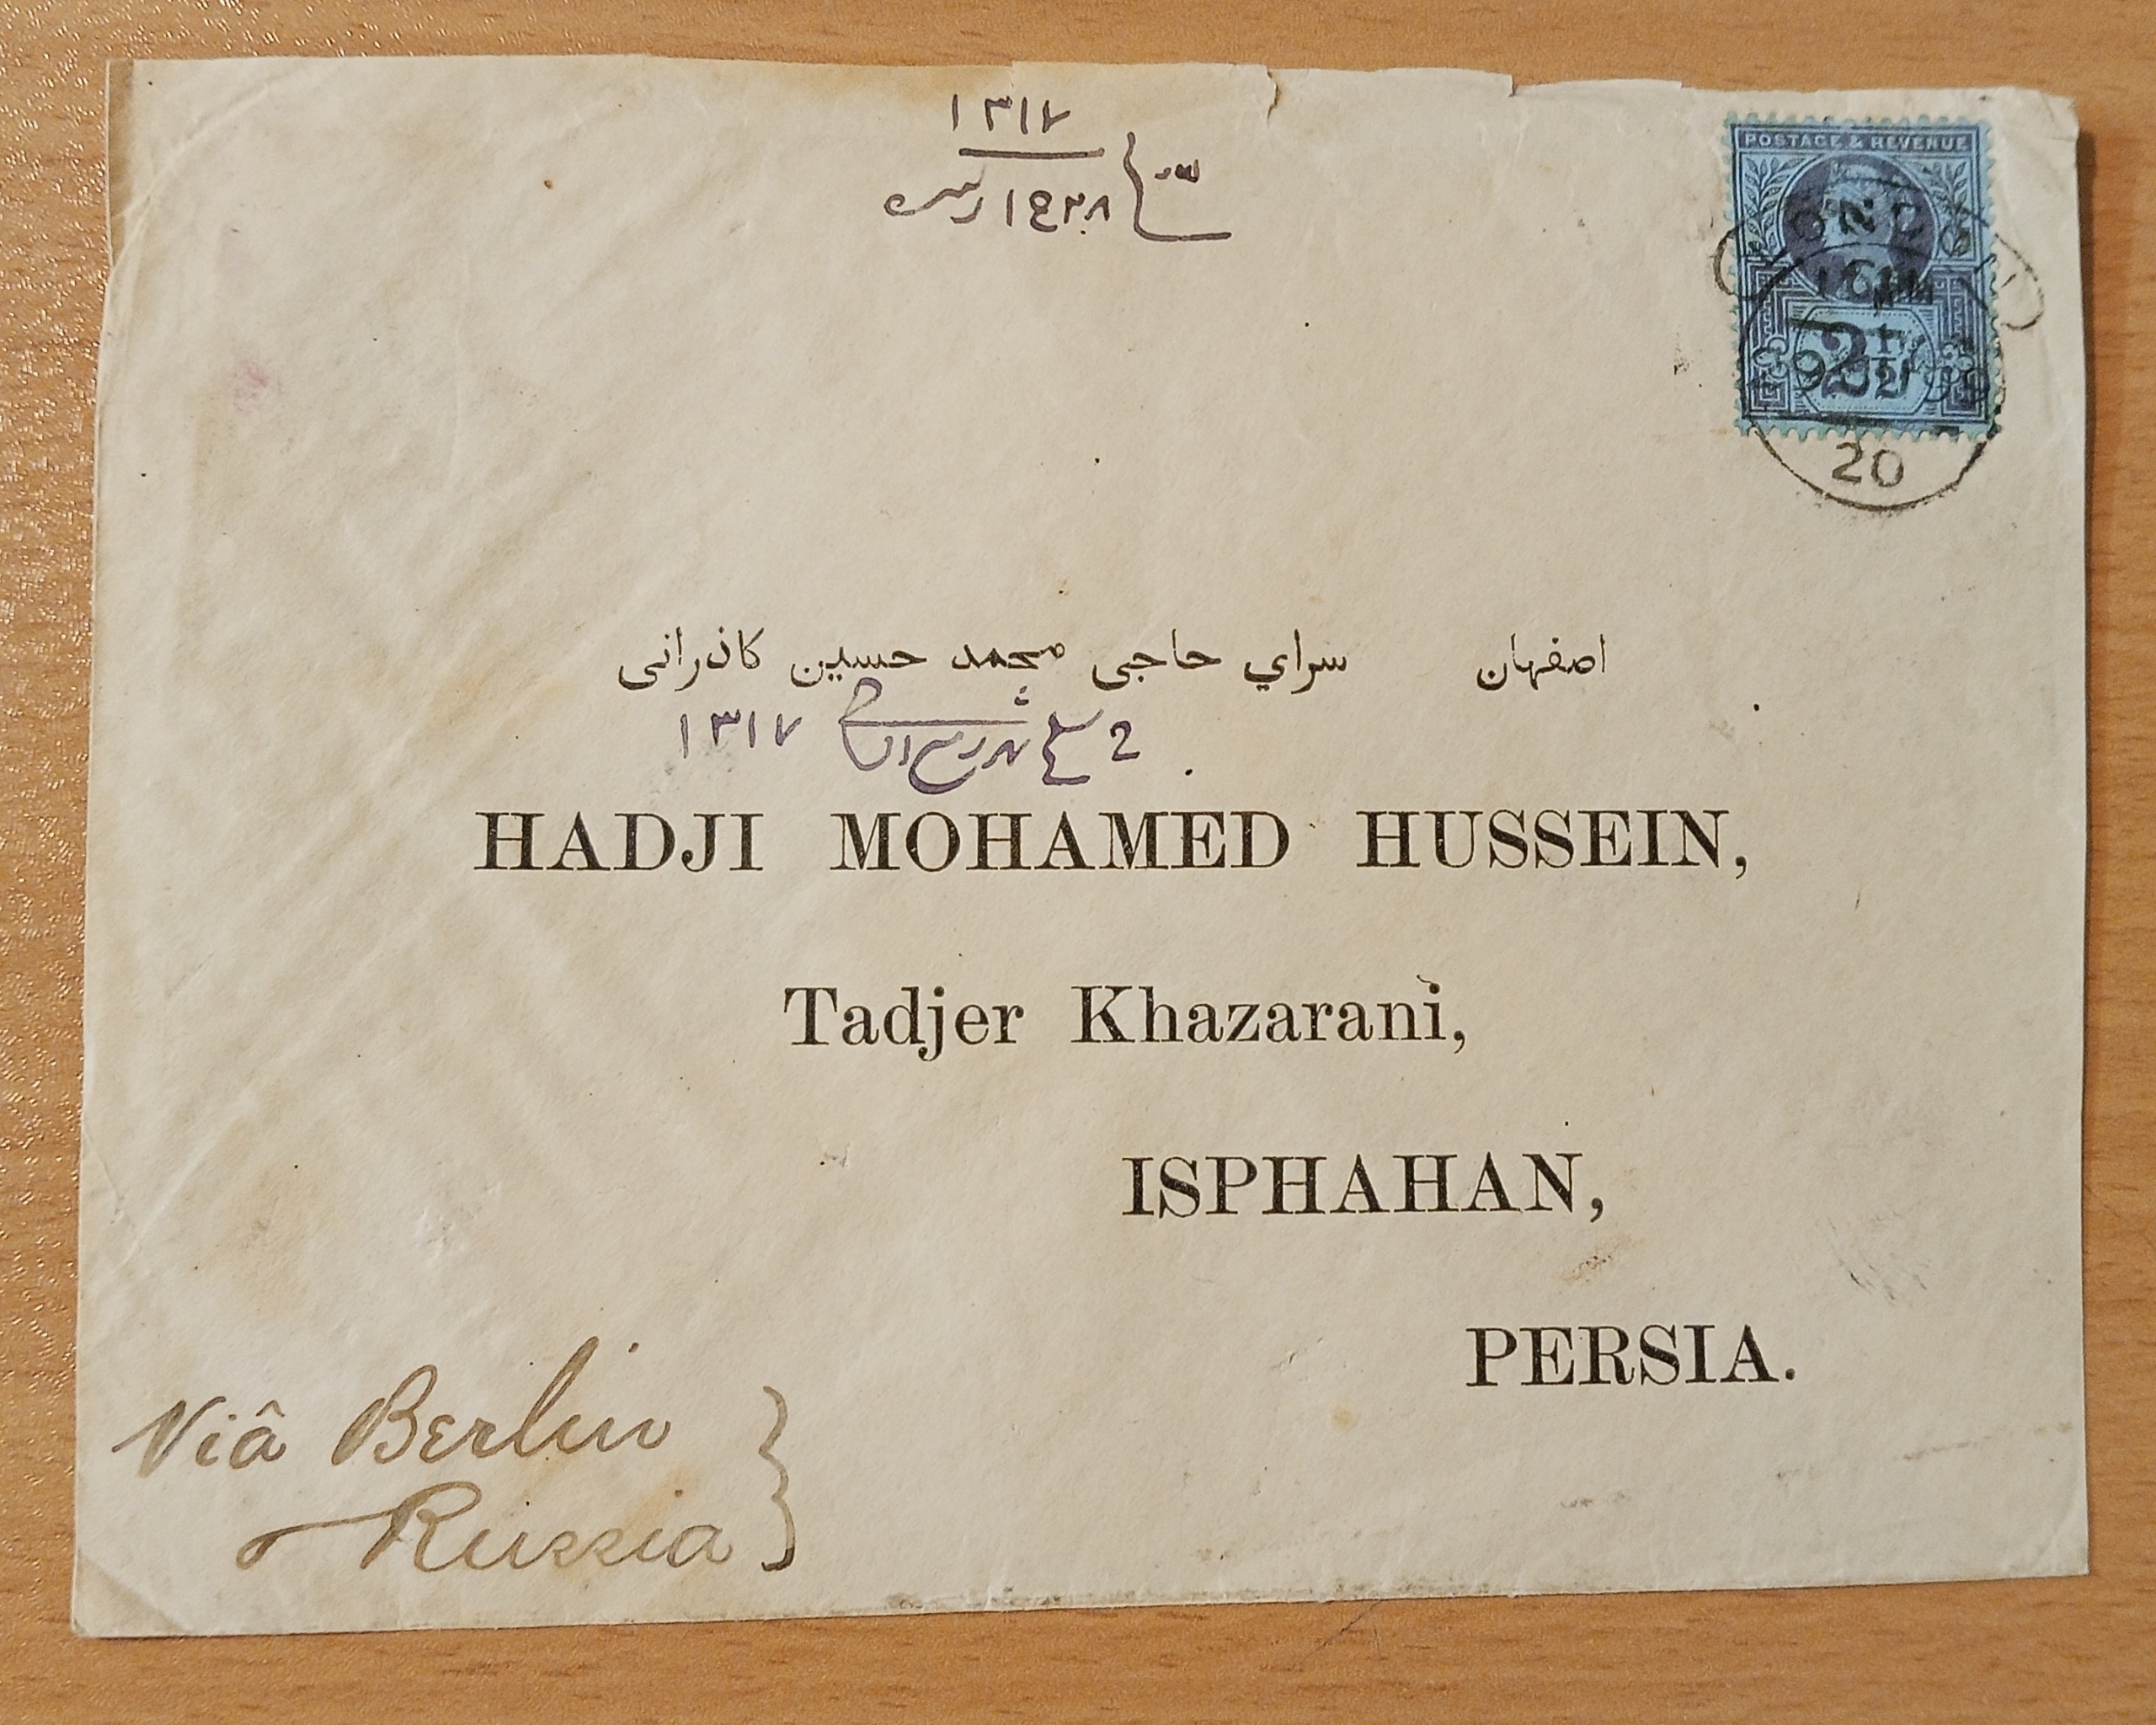 ۱۳۱۷
POSTAGE & REVENUE
LONDON
2½
20
اصفهان سراي حاجی محمد حسین کاذرانی
۱۳۱۷
HADJI MOHAMED HUSSEIN,
Tadjer Khazarani,
ISPHAHAN,
PERSIA.
Viâ Berlin
Russia